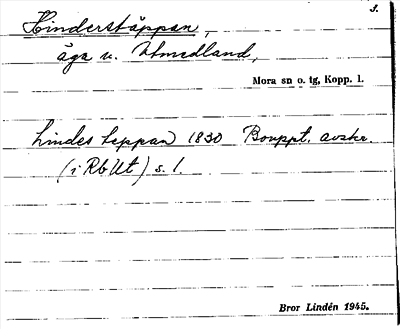 3.
Hinderstäppan,
äga u. Utmedland,
Mora sn o. tg, Kopp. l.
hindes teppan 1830 Bouppt. avskr.
(i RbUt) s. 1.
Bror Lindén 1945.